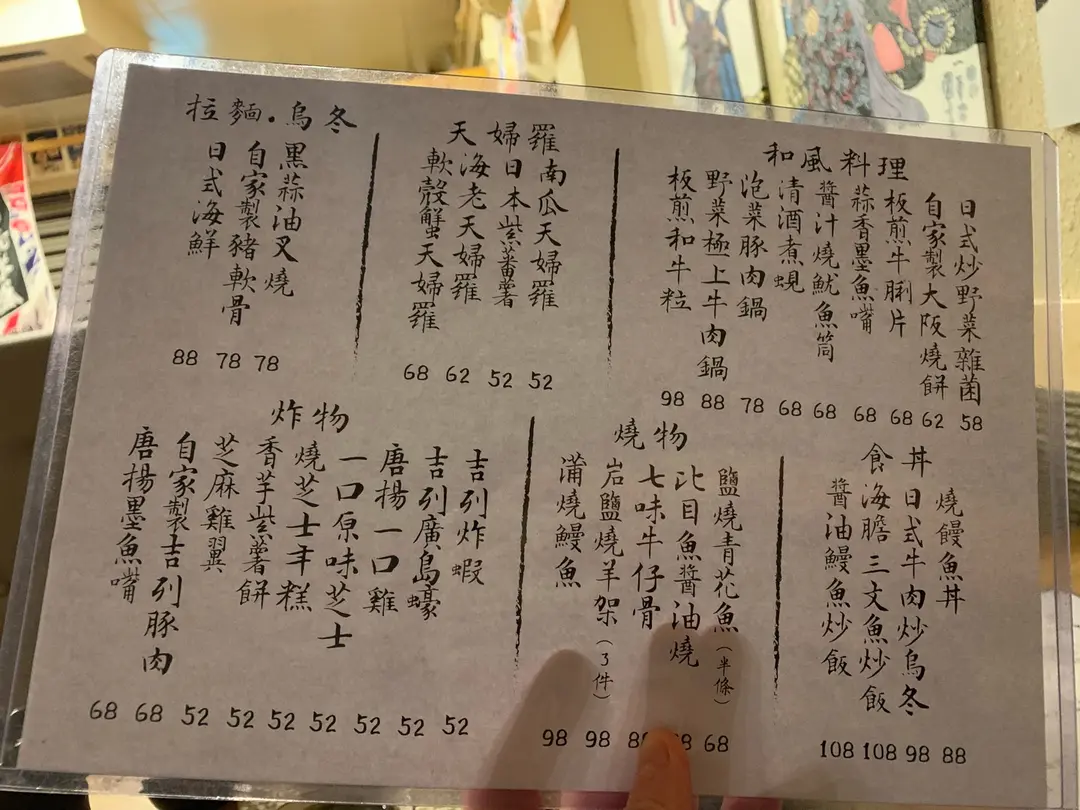 和風料理
日式炒野菜雜菌
自家製大阪燒餅
板煎牛脷片
蒜香墨魚嘴
醬汁燒魷魚筒
清酒煮蜆
泡菜豚肉鍋
野菜極上牛肉鍋
板煎和牛粒
98 88 78 68 68 68 68 62 58
天婦羅
南瓜天婦羅
日本紫蕃薯
海老天婦羅
軟殼蟹天婦羅
68 62 52 52
拉麵.烏冬
黑蒜油叉燒
自家製豬軟骨
日式海鮮
88 78 78
食丼
燒饅魚丼
日式牛肉炒烏冬
海膽三文魚炒飯
醬油鰻魚炒飯
108 108 98 88
燒物
鹽燒青花魚(半條)
比目魚醬油燒
七味牛仔骨
岩鹽燒羊架(3件)
蒲燒鰻魚
98 98 68
炸物
吉列炸蝦
吉列廣島蠔
唐揚一口雞
一口原味芝士
燒芝士年糕
香芋紫薯餅
芝麻雞翼
自家製吉列豚肉
唐揚墨魚嘴
68 68 52 52 52 52 52 52 52